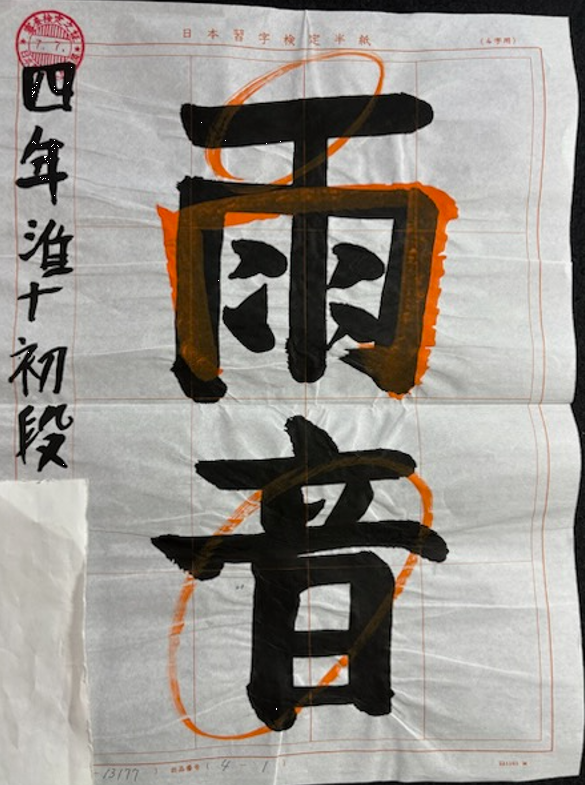 日本習字検定半紙
(4字用)
雨音
四年準十初段
-13177
出品番号(4-1)